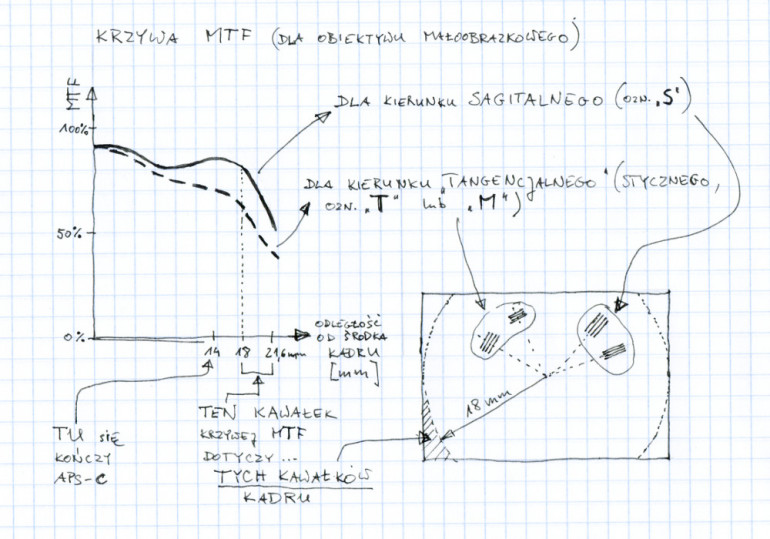 KRZYWA MTF (DLA OBIEKTYWU MAŁOOBRAZKOWEGO)
MTF
100%
50%
0%
DLA KIERUNKU SAGITALNEGO (OZN. „S")
DLA KIERUNKU „TANGENCJALNEGO" (STYCZNEGO,
OZN. „T" lub „M")
14 18 21,6mm
ODLEGŁOŚĆ
OD ŚRODKA
KADRU
[mm]
18 mm
TU SIĘ
KOŃCZY
APS-C
TEN KAWAŁEK
KRZYWEJ MTF
DOTYCZY ...
TYCH KAWAŁKÓW
KADRU